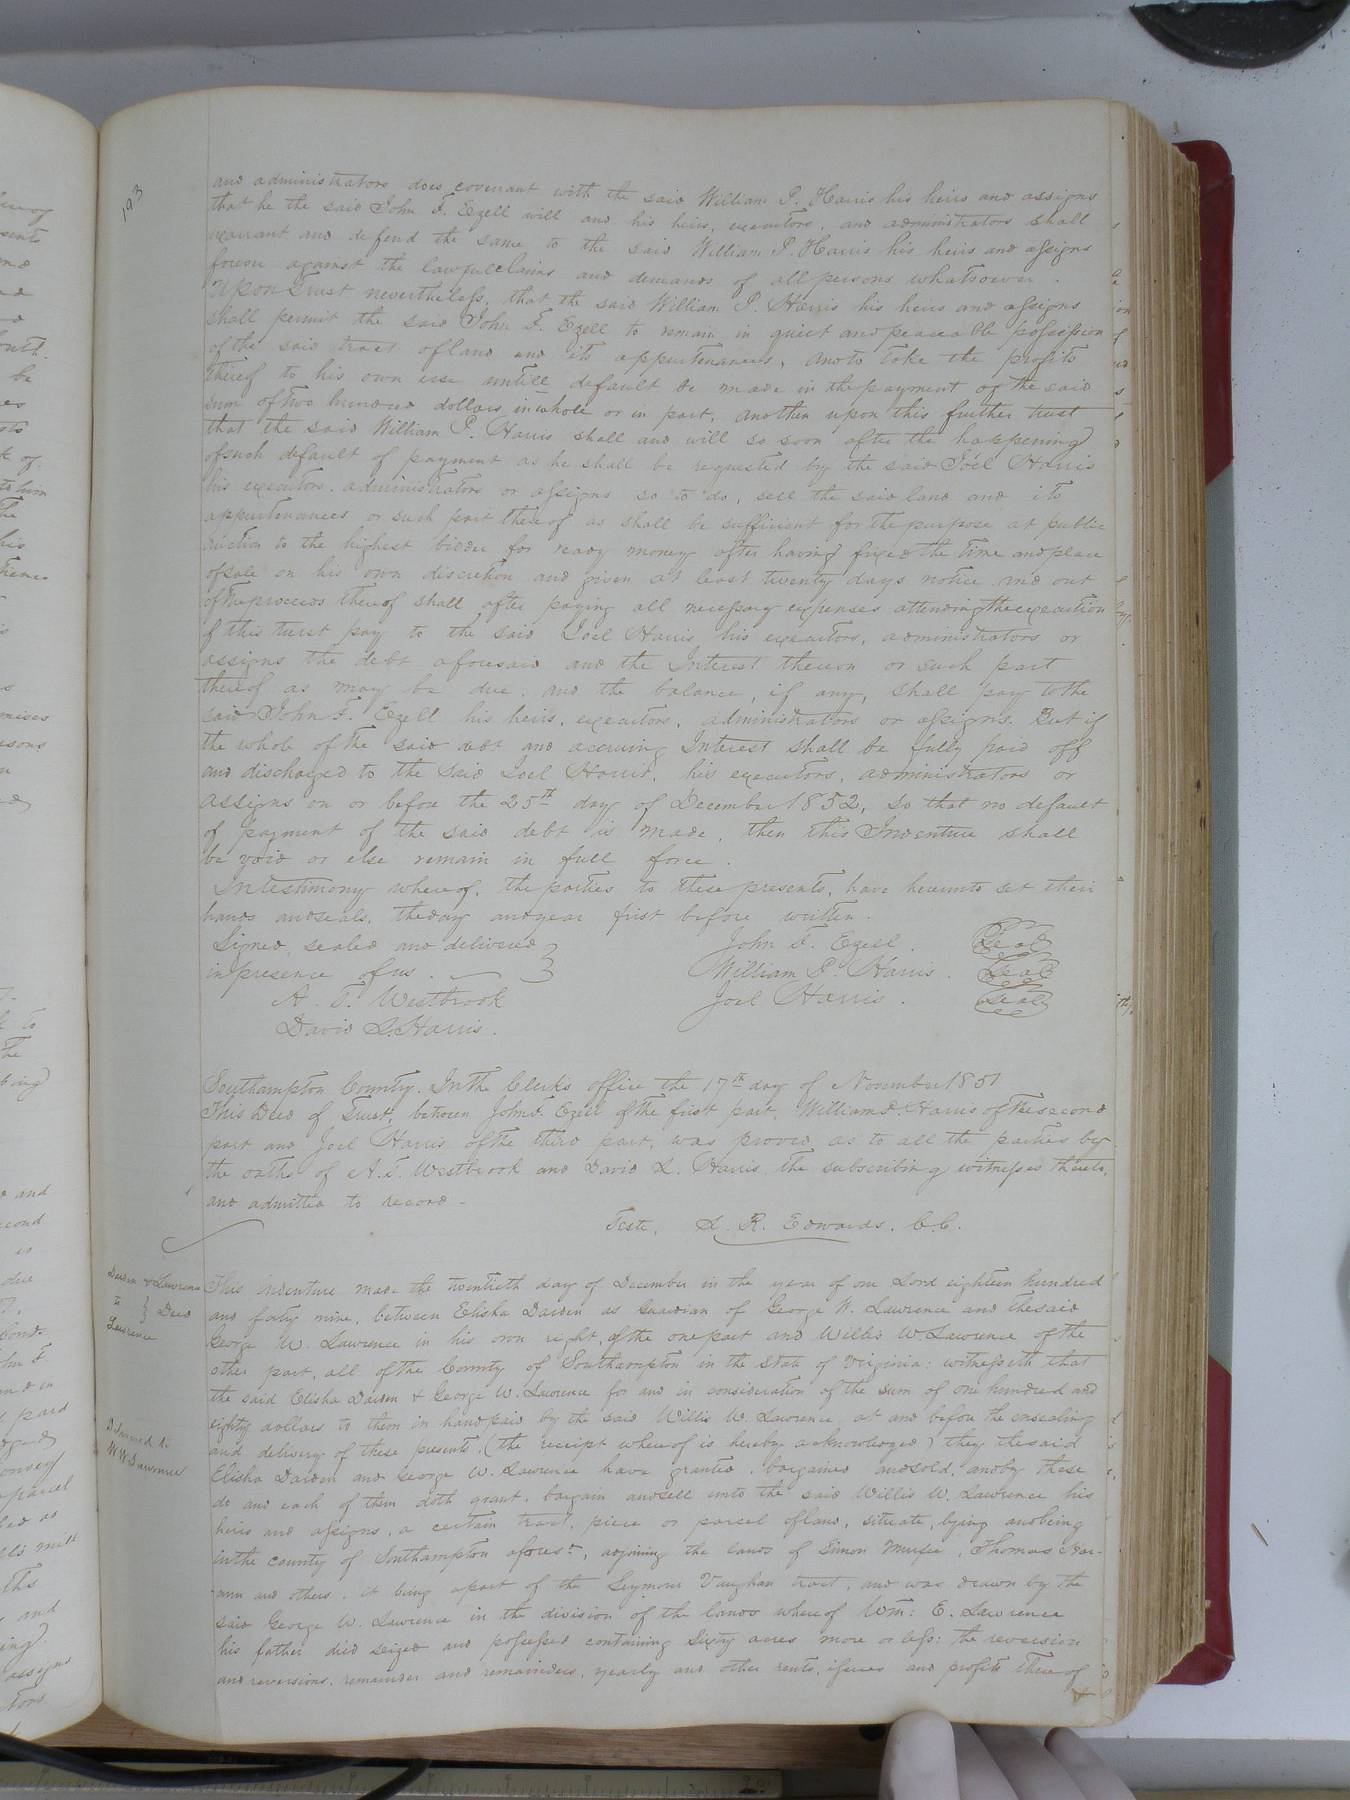 193
and administrators does covenant with the said William P. Harris his heirs and assigns
that he the said John F. Ezell will and his heirs, executors, and administrators shall
warrant and defend the same to the said William P. Harris his heirs and assigns
forever against the lawful claims and demands of all persons whatsoever.
Upon Trust nevertheless, that the said William P. Harris his heirs and assigns
shall permit the said John F. Ezell to remain in quiet and peaceable possession
of the said tract of land and its appurtenances, and to take the profits
thereof to his own use untill default be made in the payment of the said
sum of two hundred dollars in whole or in part, and then upon this further trust
that the said William P. Harris shall and will so soon after the happening
of such default of payment as he shall be requested by the said Joel Harris
his executors, administrators or assigns so to do, sell the said land and its
appurtenances or such part thereof as shall be sufficient for the purpose at public
auction to the highest bidder for ready money after having fixed the time and place
of sale on his own discretion and given at least twenty days notice and out
of the proceeds thereof shall after paying all necessary expenses attending the execution
of this trust pay to the said Joel Harris, his executors, administrators or
assigns the debt aforesaid and the Interest thereon or such part
thereof as may be due, and the balance, if any, shall pay to the
said John F. Ezell his heirs, executors, administrators or assigns. But if
the whole of the said debt and accruing Interest shall be fully paid off
and discharged to the said Joel Harris, his executors, administrators or
assigns on or before the 25th day of December 1852, so that no default
of payment of the said debt is made, then this Indenture shall
be void or else remain in full force.
In testimony whereof, the parties to these presents, have hereunto set their
hands and seals, the day and year first before written.
Signed sealed and delivered } John F. Ezell. Seal
in presence of us. } William P. Harris. Seal
A. T. Westbrook Joel Harris. Seal
David L. Harris.
Southampton County. In the Clerk's office the 17th day of November 1851
This Deed of Trust, between John F. Ezell of the first part, William P. Harris of the second
part and Joel Harris of the third part, was proved as to all the parties by
the oaths of A. T. Westbrook and David L. Harris the subscribing witnesses thereto,
and admitted to record.
Teste, L. R. Edwards, C.C.
Darden & Lawrence
to } Deed
Lawrence
This indenture made the twentieth day of December in the year of our Lord eighteen hundred
and forty nine, between Elisha Darden as Guardian of George W. Lawrence and the said
George W. Lawrence in his own right, of the one part and Willis W Lawrence of the
other part, all of the County of Southampton in the State of Virginia: witnesseth that
the said Elisha Darden & George W. Lawrence for and in consideration of the sum of one hundred and
eighty dollars to them in hand paid by the said Willis W. Lawrence, at and before the ensealing
and delivery of these presents, (the receipt whereof is hereby acknowledged) they the said
Delivered to
W W Lawrence
Elisha Darden and George W. Lawrence have granted, bargained and sold, and by these
do and each of them doth grant, bargain and sell unto the said Willis W. Lawrence his
heirs and assigns, a certain tract, piece or parcel of land, situate, lying and being
in the county of Southampton afores.d, adjoining the lands of Simon Murfee, Thomas
and others, it being apart of the Seymour Vaughan tract, and was drawn by the
said George W. Lawrence in the division of the lands whereof Wm: E. Lawrence
his father died seized and possessed containing Sixty acres more or less: the reversion
and reversions, remainder and remainders, yearly and other rents, issues and profits thereof